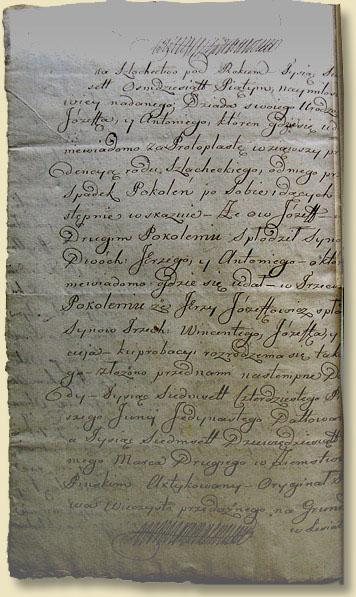 na Szlachectwo pod Rokiem Tysiąc Sie
sett Osmdziesiątt Piątym, nay
wiey nadanego, Dziada swoiego Urodz
Józeffa, y Antoniego, któren gdzieby
niewiadomo za Protoplastę wziąwszy pr
dencyą rodu, Szlacheckiego, od niego pr
Spadek Pokoleń po Sobie idących
stępnie wskazuie – Ze ów Józeff w
Drugim Pokoleniu Spłodził Synow
Dwoch Jerzego, y Antoniego – o
niewiadomo gdzie się udał – w Trzeci
Pokoleniu zaś Jerzy Józeffowicz spło
Synow Trzech Wincentego, Józeffa, y
cusza – ku probacyi rozrodzenia się tak
go – złożono przed nami nastempne D
Tysiąc Siedmsett Czterdziestego
szego Juny Jedynastego Dattowan
a Tysiąc Siedmsett Dziewiędziesiątt
mego Marca Drugiego w Ziemstwie
Pinskim Aktykowany – Oryginał
wa Wieczysto przedażnego, na Grun
w